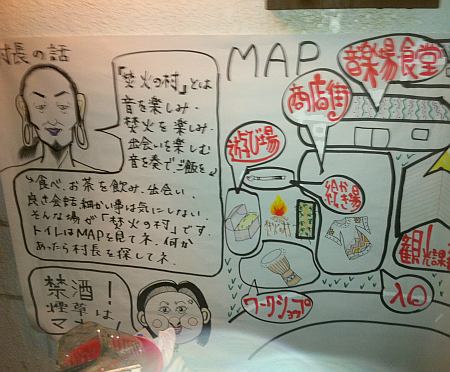 村長の話
「焚火の村」とは
音を楽しみ.
焚火を楽しみ.
出会いを楽しむ
音を奏で、ご飯を
食べ、お茶を飲み、出会い.
良き会話、細かい事は気にしない.
そんな場が「焚火の村」です.
トイレはMAPを見てネ. 何か
あったら村長を探してネ.
禁酒!
煙草は
マナー!
MAP
音楽場食堂
商店街
遊び場
焚火の村
ワークショップ
観光課
入口